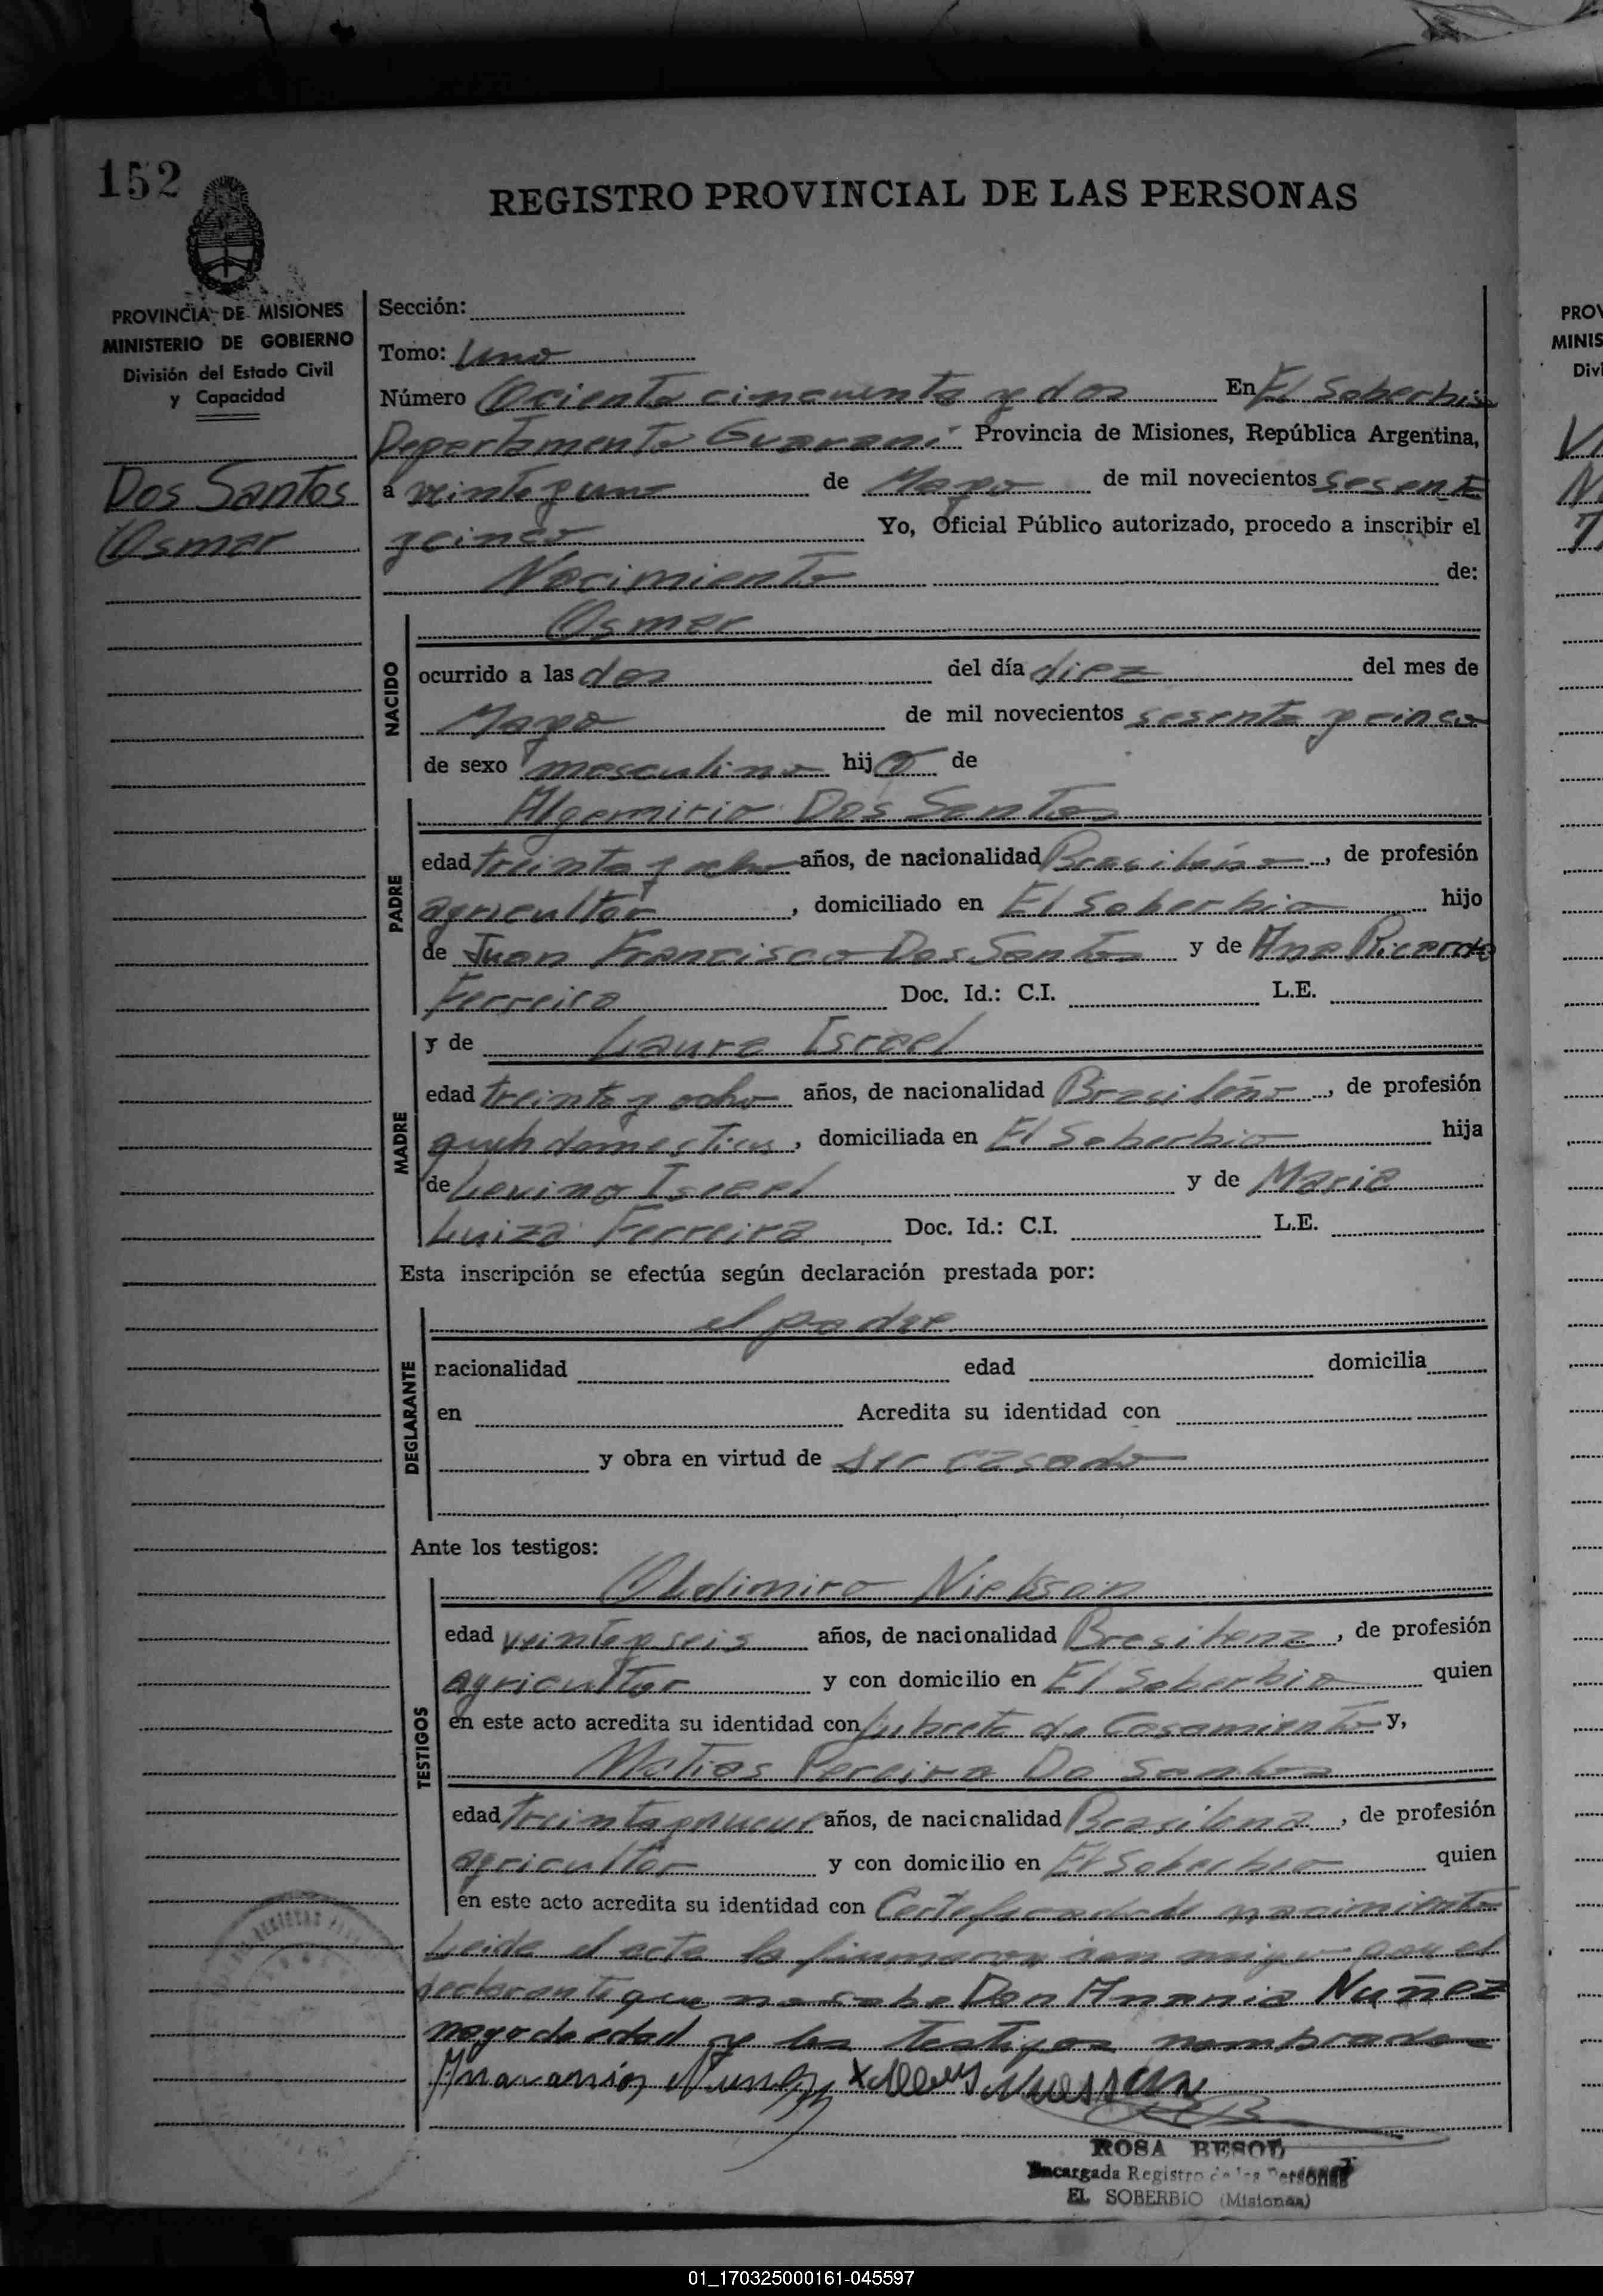 152
REGISTRO PROVINCIAL DE LAS PERSONAS
PROVINCIA DE MISIONES
MINISTERIO DE GOBIERNO
División del Estado Civil
y Capacidad
Dos Santos
Osmar
Sección:
Tomo: Uno
Número Ociento cincuenta y dos En El Soberbio
Departamento Guarani Provincia de Misiones, República Argentina,
a veinte y uno de Mayo de mil novecientos sesenta
y cinco Yo, Oficial Público autorizado, procedo a inscribir el
Nacimiento de:
NACIDO
Osmar
ocurrido a las dos del día diez del mes de
Mayo de mil novecientos sesenta y cinco
de sexo masculino hijo de
PADRE
Algemirio Dos Santos
edad treinta y ocho años, de nacionalidad Brasileña, de profesión
agricultor, domiciliado en El Soberbio hijo
de Juan Francisco Dos Santos y de Ana Ricarda
Ferreira Doc. Id.: C.I. L.E.
MADRE
y de Laura Israel
edad treinta y ocho años, de nacionalidad Brasileña, de profesión
queh domesticos, domiciliada en El Soberbio hija
de Levino Israel y de Maria
Luiza Ferreira Doc. Id.: C.I. L.E.
Esta inscripción se efectúa según declaración prestada por:
DEGLARANTE
el padre
nacionalidad edad domicilia
en Acredita su identidad con
y obra en virtud de ser casado
Ante los testigos:
TESTIGOS
Oldimiro Nielsson
edad veinte y seis años, de nacionalidad Brasilena, de profesión
agricultor y con domicilio en El Soberbio quien
en este acto acredita su identidad con Lubreta de Casamiento y,
Matias Pereira Do Santos
edad treinta y nueve años, de nacionalidad Brasilena, de profesión
agricultor y con domicilio en El Soberbio quien
en este acto acredita su identidad con Certeficado de nacimiento
Leida el acta la firmaron con migo por el
declarante que no sabe Don Anania Nuñez
mayo de edad y los testigos nombrados
Nunez
ROSA BESOL
Encargada Registro de las Personas
EL SOBERBIO (Misiones)
PROV
MINIS
Divi
01_170325000161-045597